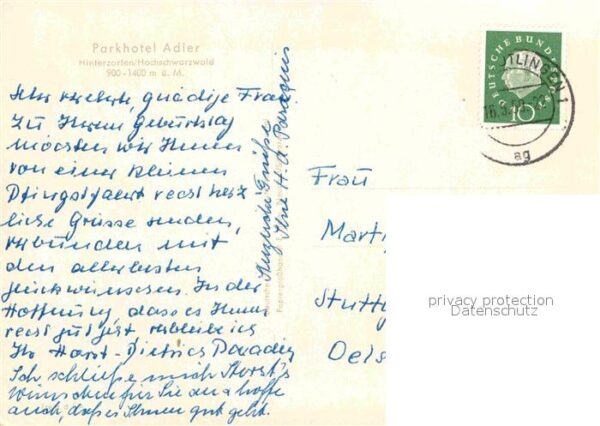 Parkhotel Adler
Hinterzarten/Hochschwarzwald
900-1400 m ü. M.
Sehr verehrte, gnädige Frau
Zu Ihrem Geburtstag
möchten wir Ihnen
von einer kleinen
Pfingstfahrt recht herz
liche Grüsse senden,
verbunden mit
den allerbesten
Glückwünschen. In der
Hoffnung, dass es Ihnen
recht gut geht verbleibe ich
Ihr Horst-Dietrich
Ich schließe mich Horst's
Wünschen für Sie an u. hoffe
auch, daß es Ihnen gut geht.
Herzliche Grüße
Ihre H. a.
DEUTSCHE BUNDESPOST
10
TLINGEN 1
ag
Frau
Marti
Stuttg
Oels
privacy protection
Datenschutz